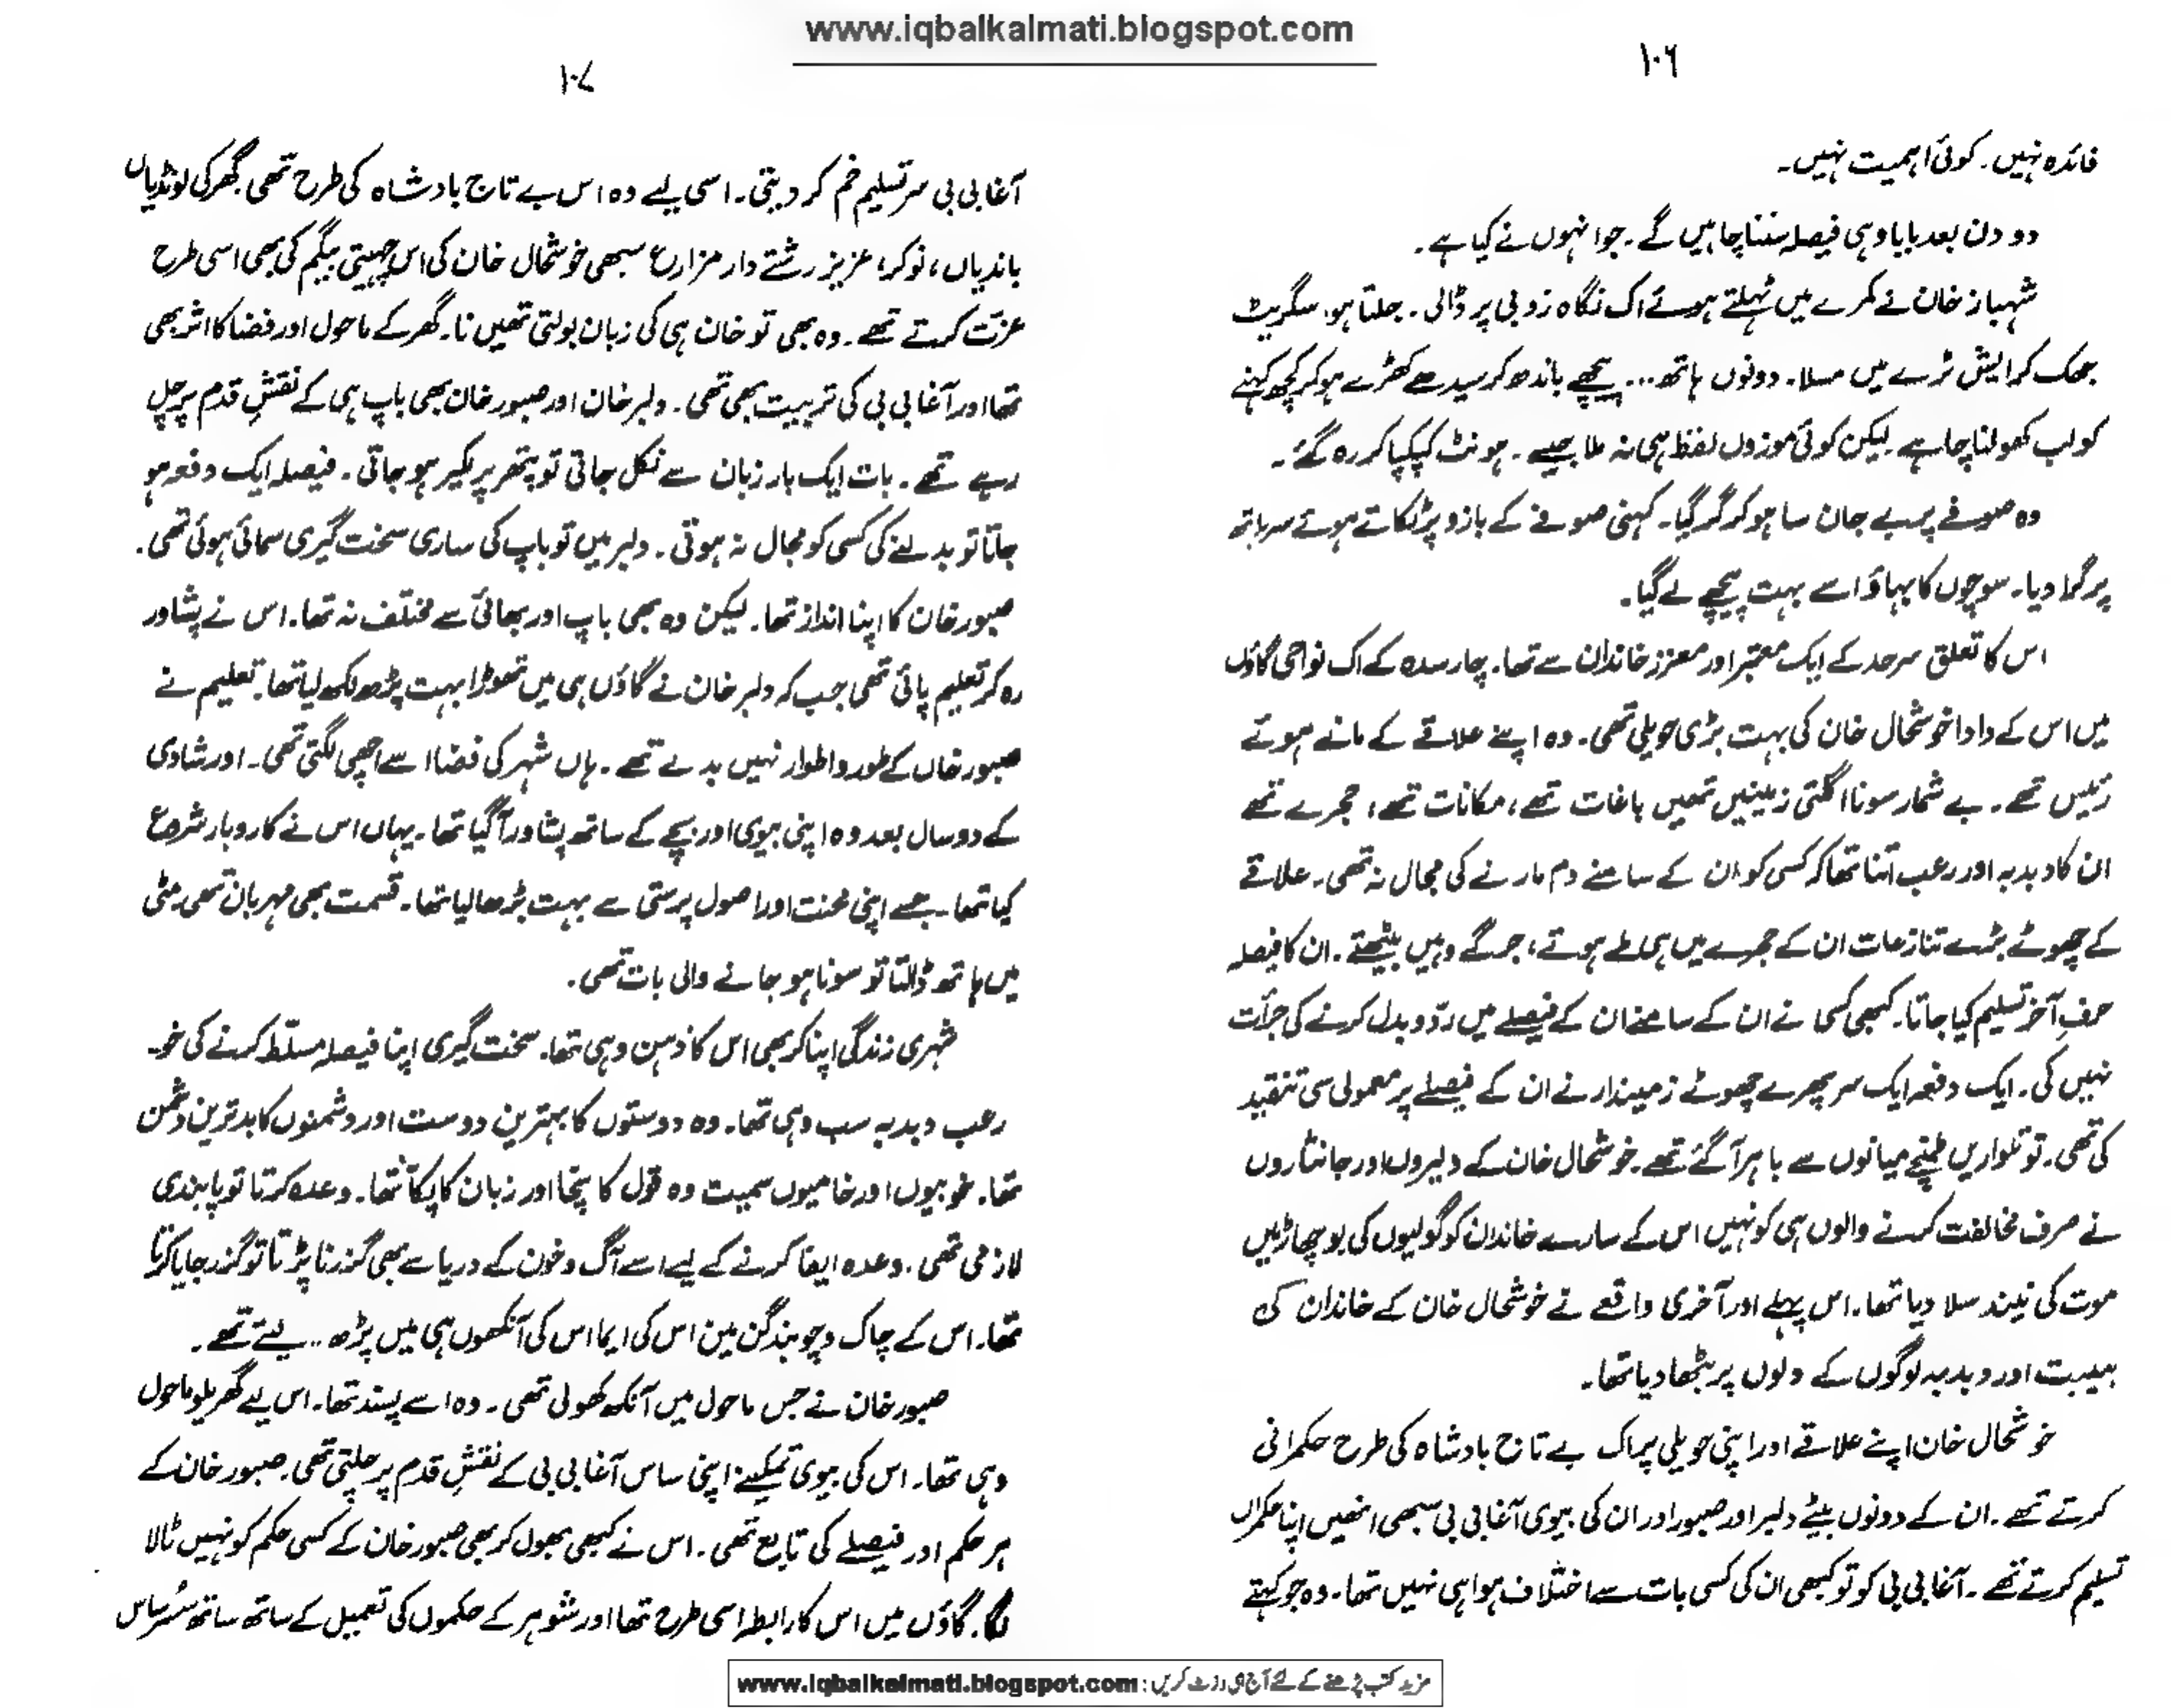 www.iqbalkalmati.blogspot.com
۱۰۶
فائدہ نہیں۔ کوئی اہمیت نہیں۔
دو دن بعد بابا وہی فیصلہ سننا چاہیں گے۔ جو انہوں نے کیا ہے۔
شہباز خان نے کمرے میں ٹہلتے ہوئے اک نگاہ زوبی پر ڈالی۔ جلتا ہوا سگریٹ
جھک کر ایش ٹرے میں مسلا۔ دونوں ہاتھ... پیچھے باندھ کر سیدھے کھڑے ہو کر کچھ کہنے
کو لب کھولنا چاہے لیکن کوئی موزوں لفظ ہی نہ ملا جیسے۔ ہونٹ کپکپا کر رہ گئے۔
وہ صوفے پر بے جان سا ہو کر گر گیا۔ کہنی صوفے کے بازو پر ٹکاتے ہوئے سر ہاتھ
پر گرا دیا۔ سوچوں کا بہاؤ اسے بہت پیچھے لے گیا۔
اس کا تعلق سرحد کے ایک معتبر اور معزز خاندان سے تھا۔ چارسدہ کے اک نواحی گاؤں
میں اس کے دادا خوشحال خان کی بہت بڑی حویلی تھی۔ وہ اپنے علاقے کے مانے ہوئے
رئیس تھے۔ بے شمار سونا اگلتی زمینیں تھیں باغات تھے، مکانات تھے، حجرے تھے
ان کا دبدبہ اور رعب اتنا تھا کہ کسی کو ان کے سامنے دم مارنے کی مجال نہ تھی۔ علاقے
کے چھوٹے بڑے تنازعات ان کے حجرے میں ہی طے ہوتے، جرگے وہیں بیٹھتے۔ ان کا فیصلہ
حرفِ آخر تسلیم کیا جاتا۔ کبھی کسی نے ان کے سامنے ان کے فیصلے میں ردّ و بدل کرنے کی جرأت
نہیں کی۔ ایک دفعہ ایک سر پھرے چھوٹے زمیندار نے ان کے فیصلے پر معمولی سی تنقید
کی تھی۔ تو تلواریں طپنچے میانوں سے باہر آ گئے تھے۔ خوشحال خان کے دلیروں اور جانثاروں
نے صرف مخالفت کرنے والوں ہی کو نہیں اس کے سارے خاندان کو گولیوں کی بوچھاڑ میں
موت کی نیند سلا دیا تھا۔ اس پہلے اور آخری واقعے نے خوشحال خان کے خاندان کی
ہیبت اور دبدبہ لوگوں کے دلوں پر بٹھا دیا تھا۔
خوشحال خان اپنے علاقے اور اپنی حویلی پر اک بے تاج بادشاہ کی طرح حکمرانی
کرتے تھے۔ ان کے دونوں بیٹے دلبر اور صبور اور ان کی بیوی آغا بی بی سبھی انھیں اپنا حکمراں
تسلیم کرتے تھے۔ آغا بی بی کو تو کبھی ان کی کسی بات سے اختلاف ہوا ہی نہیں تھا۔ وہ جو کہتے
۱۰۷
آغا بی بی سر تسلیم خم کر دیتی۔ اسی لیے وہ اس بے تاج بادشاہ کی طرح تھی۔ گھر کی لونڈیاں
باندیاں، نوکر، عزیز رشتے دار مزارع سبھی خوشحال خان کی اس چہیتی بیگم کی بھی اسی طرح
عزت کرتے تھے۔ وہ بھی تو خان ہی کی زبان بولتی تھیں نا۔ گھر کے ماحول اور فضا کا اثر بھی
تھا اور آغا بی بی کی تربیت بھی تھی۔ دلبر خان اور صبور خان بھی باپ ہی کے نقشِ قدم پر چل
رہے تھے۔ بات ایک بار زبان سے نکل جاتی تو پتھر پر لکیر ہو جاتی۔ فیصلہ ایک دفعہ ہو
جاتا تو بدلنے کی کسی کو مجال نہ ہوتی۔ دلبر میں تو باپ کی ساری سخت گیری سمائی ہوئی تھی۔
صبور خان کا اپنا انداز تھا۔ لیکن وہ بھی باپ اور بھائی سے مختلف نہ تھا۔ اس نے پشاور
رہ کر تعلیم پائی تھی جب کہ دلبر خان نے گاؤں ہی میں تھوڑا بہت پڑھ لکھ لیا تھا۔ تعلیم نے
صبور خاں کے طور و اطوار نہیں بدلے تھے۔ ہاں شہر کی فضا اسے اچھی لگتی تھی۔ اور شادی
کے دو سال بعد وہ اپنی بیوی اور بچے کے ساتھ پشاور آ گیا تھا۔ یہاں اس نے کاروبار شروع
کیا تھا۔ جسے اپنی محنت اور اصول پرستی سے بہت بڑھا لیا تھا۔ قسمت بھی مہربان تھی مٹی
میں ہاتھ ڈالتا تو سونا ہو جانے والی بات تھی۔
شہری زندگی اپنا کر بھی اس کا ذہن وہی تھا۔ سخت گیری اپنا فیصلہ مسلّط کرنے کی خو۔
رعب و دبدبہ سب وہی تھا۔ وہ دوستوں کا بہترین دوست اور دشمنوں کا بدترین دشمن
تھا۔ خوبیوں اور خامیوں سمیت وہ قول کا سچا اور زبان کا پکا تھا۔ وعدہ کرتا تو پابندی
لازمی تھی۔ وعدہ ایفا کرنے کے لیے اسے آگ و خون کے دریا سے بھی گزرنا پڑتا تو گزر جایا کرتا
تھا۔ اس کے چاک و چوبند گن مین اس کی ایما اس کی آنکھوں ہی میں پڑھ .. لیتے تھے۔
صبور خان نے جس ماحول میں آنکھ کھولی تھی۔ وہ اسے پسند تھا۔ اس لیے گھریلو ماحول
وہی تھا۔ اس کی بیوی تمکینے اپنی ساس آغا بی بی کے نقشِ قدم پر چلتی تھی۔ صبور خان کے
ہر حکم اور فیصلے کی تابع تھی۔ اس نے کبھی بھول کر بھی صبور خان کے کسی حکم کو نہیں ٹالا
تھا۔ گاؤں میں اس کا رابطہ اسی طرح تھا اور شوہر کے حکموں کی تعمیل کے ساتھ ساتھ سُسر ساس
مزید کتب پڑھنے کے لئے آج ہی وزٹ کریں: www.iqbalkalmati.blogspot.com